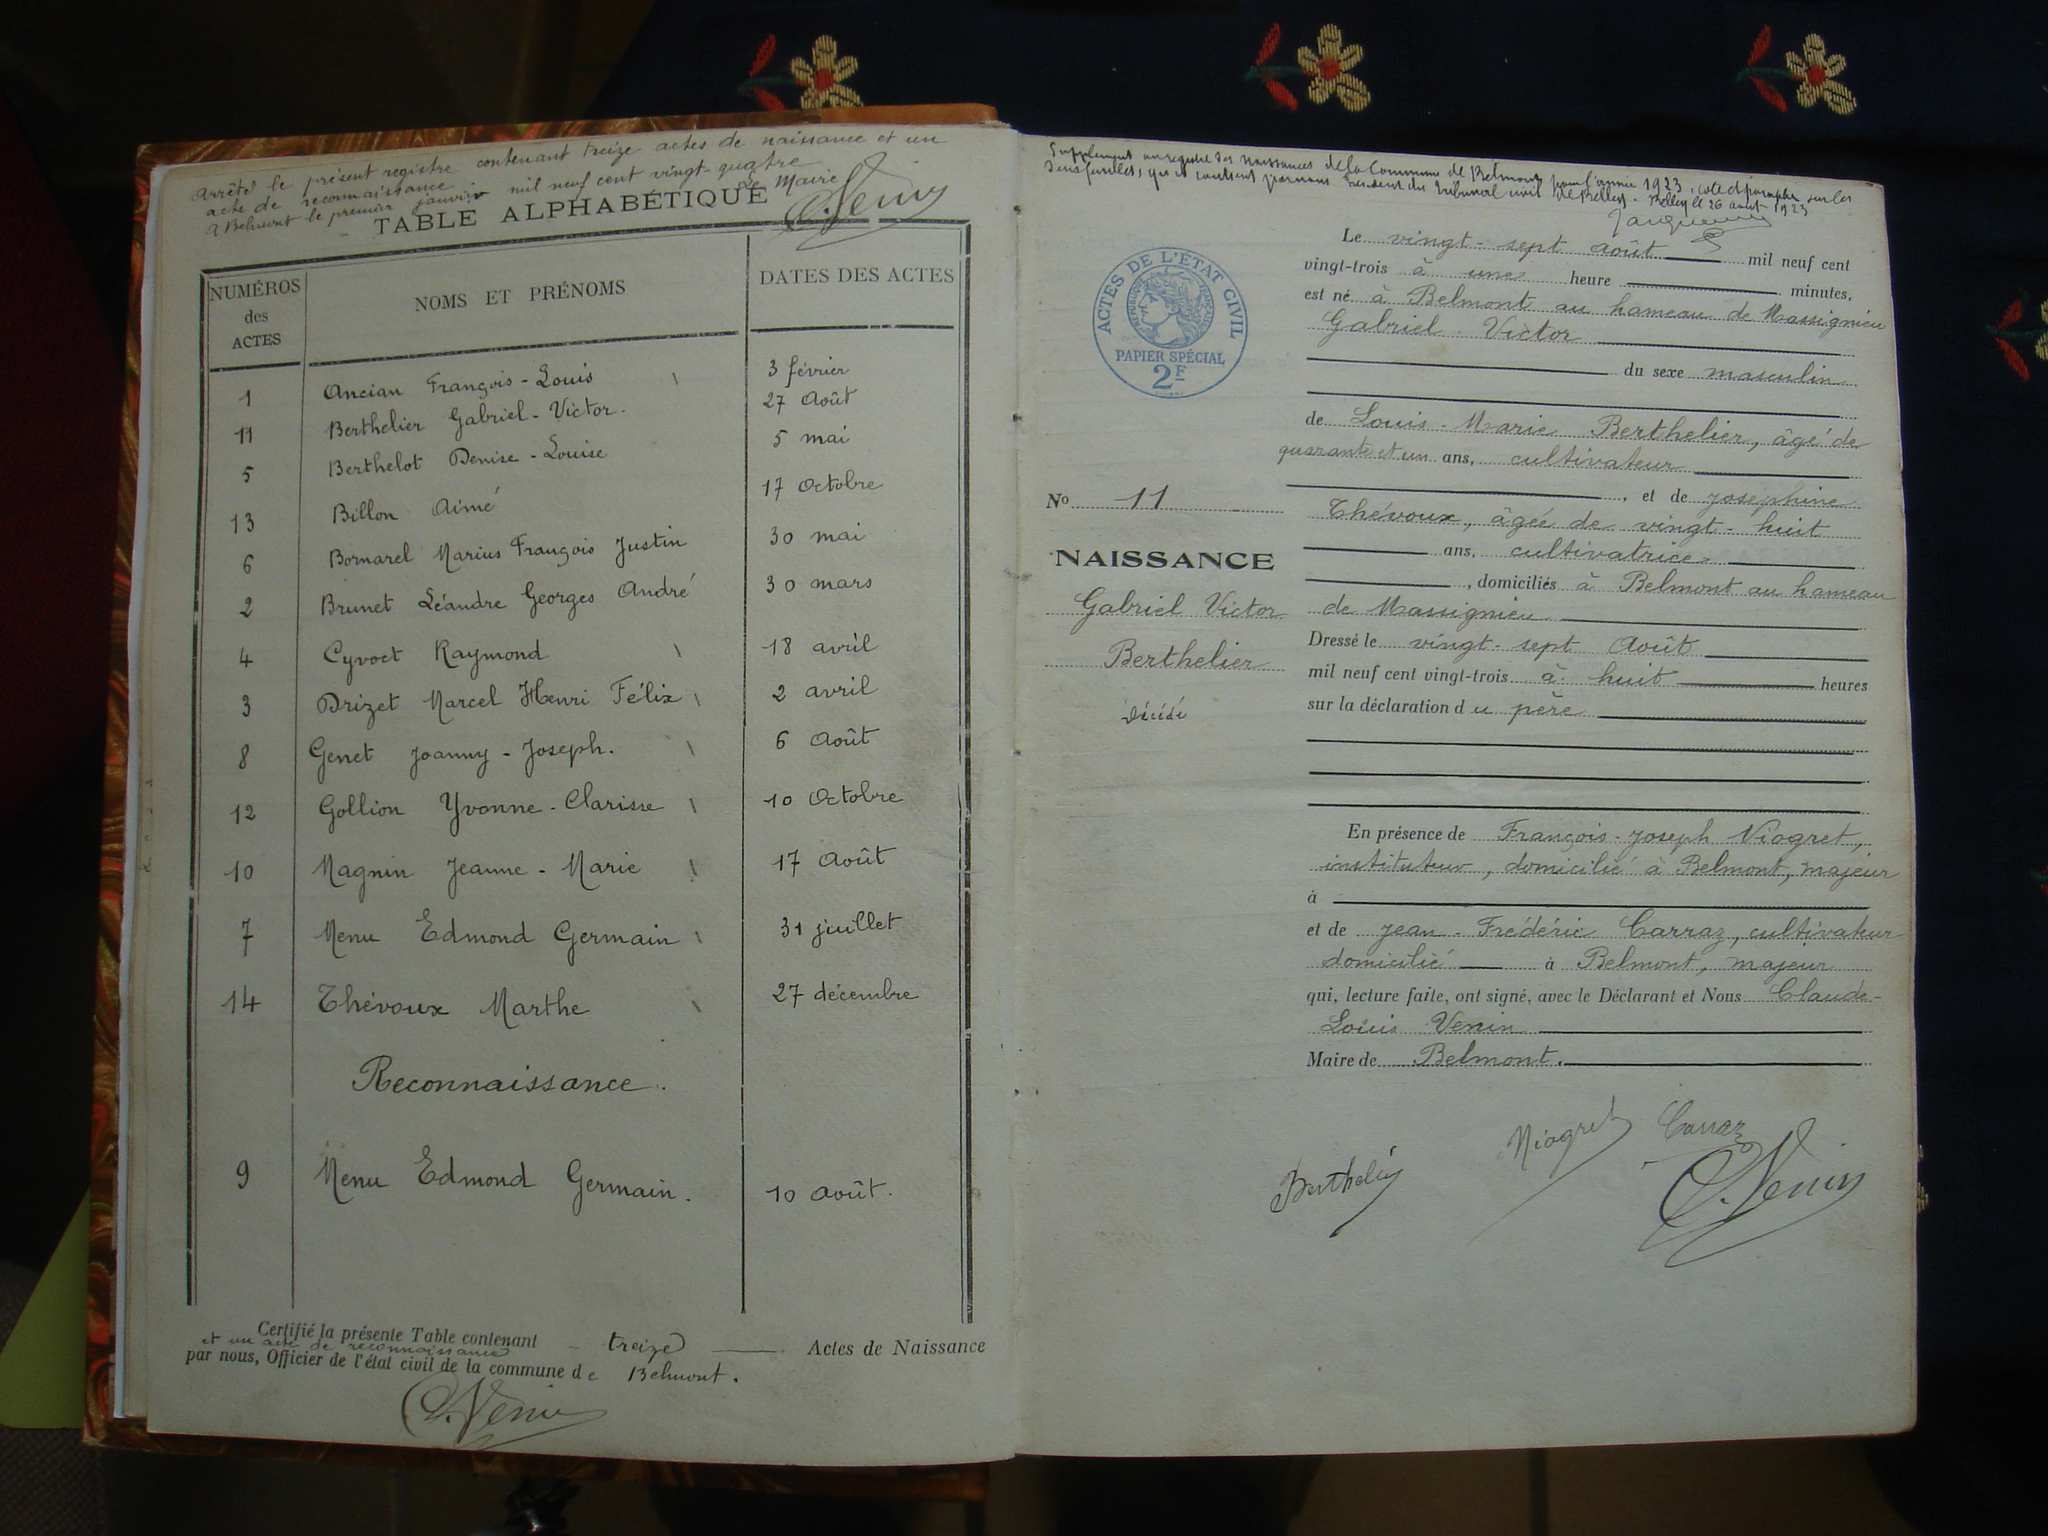 Arrêté le présent registre contenant treize actes de naissance et un
acte de reconnaissance
A Belmont le premier janvier mil neuf cent vingt-quatre
Le Maire
C. Venin
TABLE ALPHABÉTIQUE
NUMÉROS des ACTES
NOMS ET PRÉNOMS
DATES DES ACTES
1 Ancian François-Louis 3 février
11 Berthelier Gabriel-Victor. 27 Août
5 Berthelot Denise-Louise 5 mai
13 Billon Aimé 17 Octobre
6 Bornarel Marius François Justin 30 mai
2 Brunet Léandre Georges André 30 mars
4 Cyvoct Raymond 18 avril
3 Drizet Marcel Henri Félix 2 avril
8 Genet Joanny-Joseph. 6 Août
12 Gollion Yvonne-Clarisse 10 Octobre
10 Magnin Jeanne-Marie 17 Août
7 Menu Edmond Germain 31 juillet
14 Thévoux Marthe 27 décembre
Reconnaissance.
9 Menu Edmond Germain. 10 août.
Certifié la présente Table contenant treize Actes de Naissance
et un acte de reconnaissance
par nous, Officier de l'état civil de la commune de Belmont.
C. Venin
Supplément au registre des naissances de la Commune de Belmont pour l'année 1923, coté et paraphé sur les
deux feuillets, qu'il contient par nous Président du Tribunal civil de Belley. Belley le 26 août 1923
ACTES DE L'ÉTAT CIVIL
RÉPUBLIQUE FRANÇAISE
PAPIER SPÉCIAL
2F
Le vingt-sept août mil neuf cent
vingt-trois à une heure minutes,
est né à Belmont au hameau de Massignieu
Gabriel Victor
du sexe masculin
de Louis-Marie Berthelier, âgé de
quarante et un ans, cultivateur
, et de Joséphine
Thévoux, âgée de vingt-huit
ans, cultivatrice
, domiciliés à Belmont au hameau
de Massignieu
Dressé le vingt-sept Août
mil neuf cent vingt-trois à huit heures
sur la déclaration du père
En présence de François-Joseph Viogret,
instituteur, domicilié à Belmont, majeur
à
et de Jean-Frédéric Carraz, cultivateur
domicilié à Belmont, majeur
qui, lecture faite, ont signé, avec le Déclarant et Nous Claude-
Louis Venin
Maire de Belmont.
No 11
NAISSANCE
Gabriel Victor
Berthelier
décédé
Viogret Carraz
Berthelier C. Venin